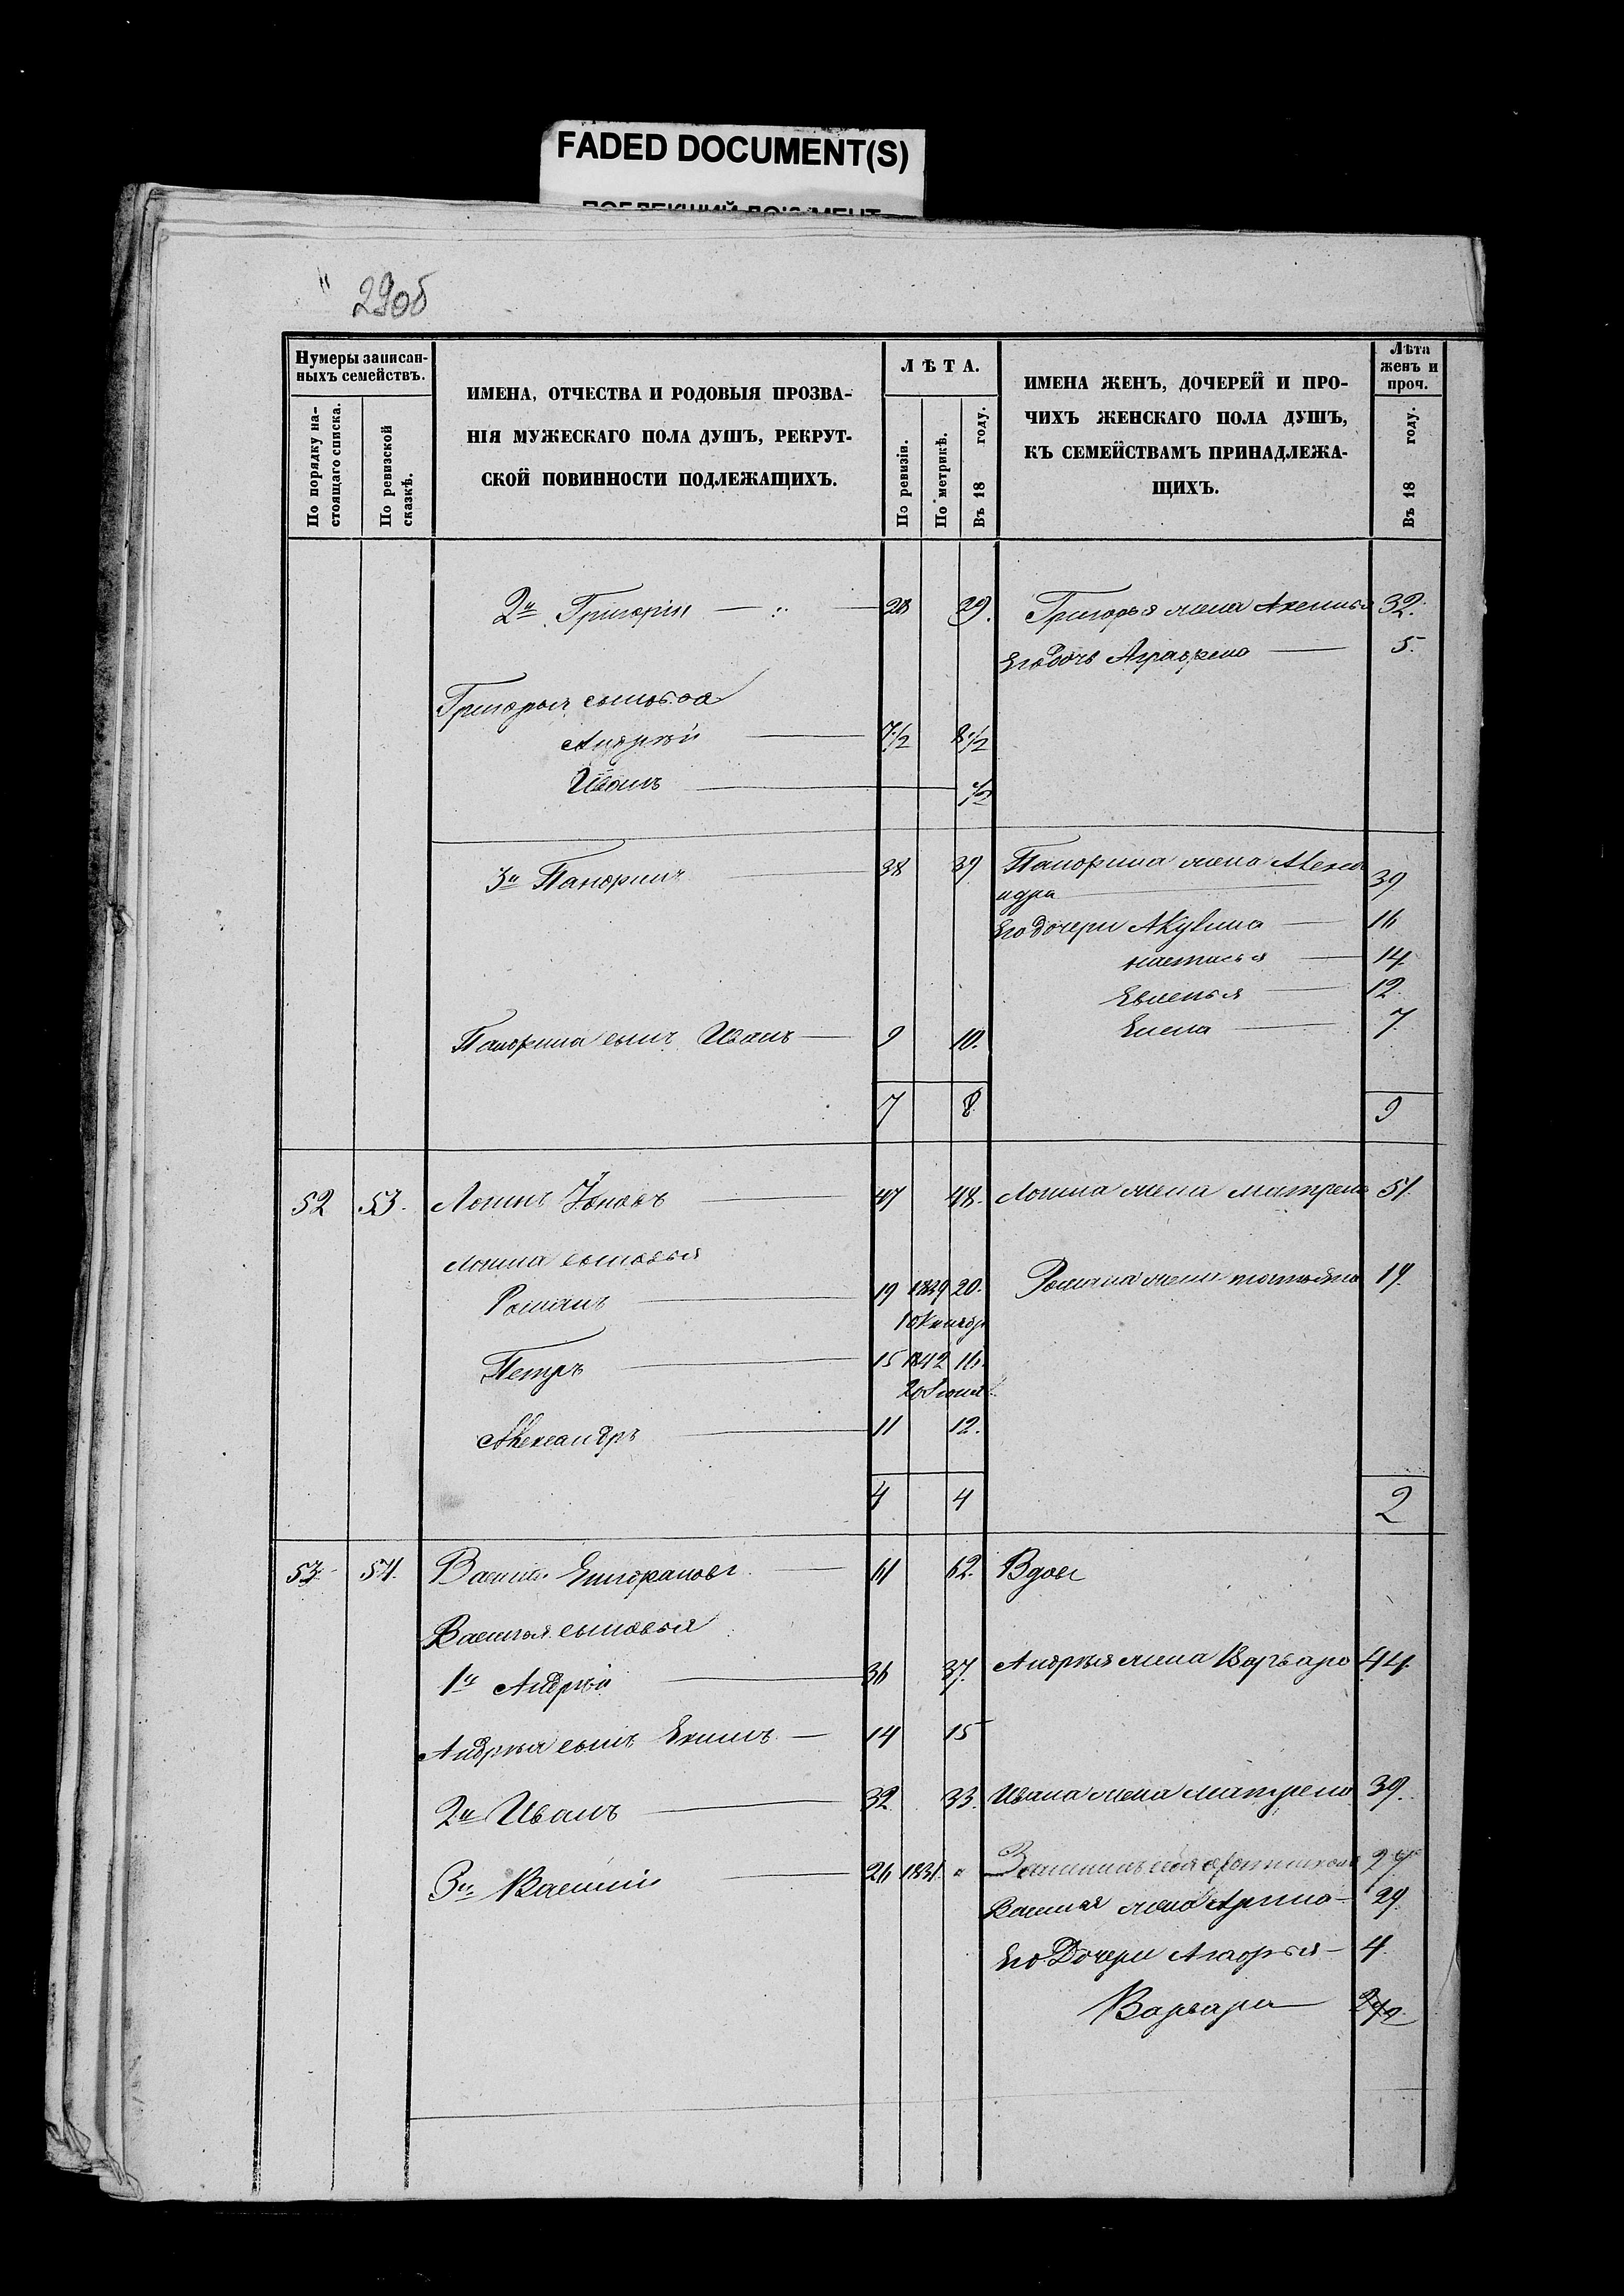 FADED DOCUMENT(S)
29об
Нумеры записан-
ныхъ семействъ.
По порядку на-
стоящаго списка.
По ревизской
сказкѣ.
ИМЕНА, ОТЧЕСТВА И РОДОВЫЯ ПРОЗВА-
НІЯ МУЖЕСКАГО ПОЛА ДУШЪ, РЕКРУТ-
СКОЙ ПОВИННОСТИ ПОДЛЕЖАЩИХЪ.
ЛѢТА.
По ревизіи.
По метрикѣ.
Въ 18 году.
ИМЕНА ЖЕНЪ, ДОЧЕРЕЙ И ПРО-
ЧИХЪ ЖЕНСКАГО ПОЛА ДУШЪ,
КЪ СЕМЕЙСТВАМЪ ПРИНАДЛЕЖА-
ЩИХЪ.
Лѣта
женъ и
проч.
Въ 18 году.
2й Григорій 28 29. Григорья жена Аксинья 32.
Его дочь Аграфена 5.
Григорья сыновья
Андрей 7½ 8½
Иванъ ½
3й 38 39 жена Алекса
ндра 39
Его дочери Акулина 16
Настасья 14
12
Елена 7
сынъ Иванъ 9 10.
7 8 9
52 53. Логинъ 47 48. Логина жена Матрена 51.
Логина сыновья
Романъ 19 1839 20. Романа жена 19
1 Октябр
Петръ 15 1842 16.
Александръ 11 12.
4 4 2
53 54. 61 62. Вдовъ
Василья сыновья
1й Андрей 36 37. Андрея жена Варвара 44.
Андрея сынъ Екимъ 14 15
2й Иванъ 32 33. Ивана жена Матрена 39.
3й Василій 26 1831. 27
Василья жена Арина 29
Его Дочери 4.
Варвара